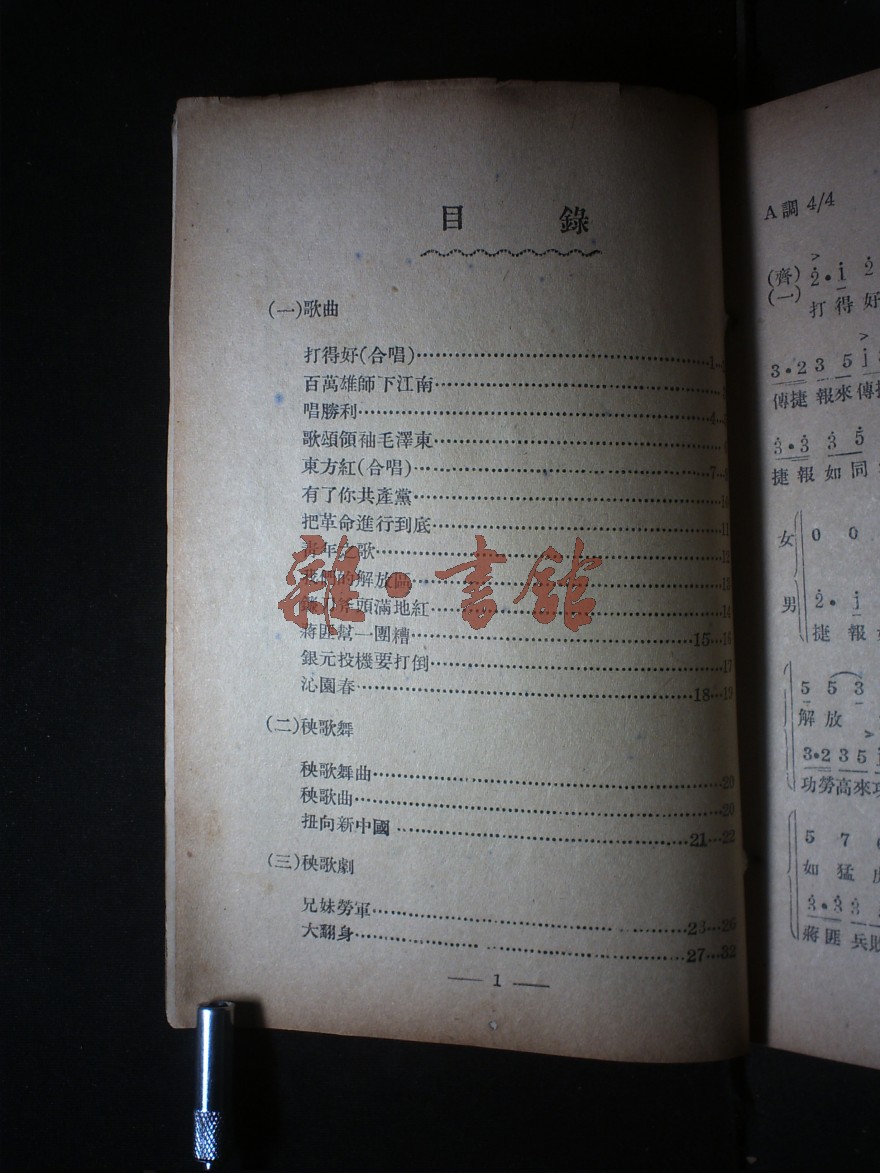 目 錄
(一)歌曲
打得好(合唱)…1…
百萬雄師下江南…
唱勝利…4…
歌頌領袖毛澤東…
東方紅(合唱)…7…
有了你共產黨…10
把革命進行到底…11
青年之歌…12
我們的解放區…13
鐮刀斧頭滿地紅…14
蔣匪幫一團糟…15…16
銀元投機要打倒…17
沁園春…18…19
(二)秧歌舞
秧歌舞曲…20
秧歌曲…20
扭向新中國…21…22
(三)秧歌劇
兄妹勞軍…23…26
大翻身…27…32
— 1 —
雜·書館
A調 4/4
(齊)
(一) 2·i 2
打 得 好
3·2 3 5 i
傳捷 報來傳捷
3·3 3 5
捷報 如同
女 0 0
男 2· i
捷 報
5 5 3
解 放
3·2 3 5
功勞高來功
5 7
如 猛 虎
3·3 3
蔣匪 兵敗